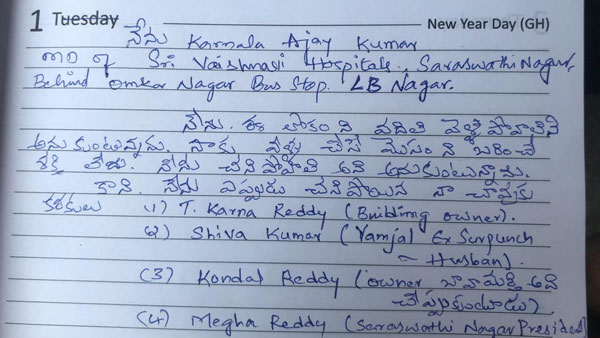 1 Tuesday New Year Day (GH)
నేను Karnala Ajay Kumar
MD of Sri Vaishnavi Hospitals, Saraswathi Nagar,
Behind Omkar Nagar Bus Stop. LB Nagar.
నేను. ఈ లోకం ని వదిలి వెళ్లి పోవాలని
అనుకుంటున్నాను. నాకు వీళ్లు చేసే మోసం ని భరించే
శక్తి లేదు. నేను చనిపోవాలి అని అనుకుంటున్నాను.
కాని నేను ఎప్పుడు చనిపోయిన నా చావుకు
కారకులు (1) T. Karna Reddy (Building owner).
(2) Shiva Kumar (Yamjal Ex Surpunch
Husban).
(3) Kondal Reddy (owner బావమర్ది అని
చెప్పుకుంటాడు).
(4) Megha Reddy (Saraswathi Nagar President)